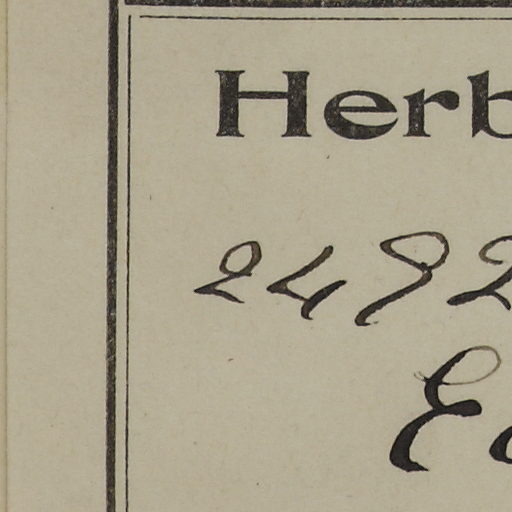 Herb
2492
Ec